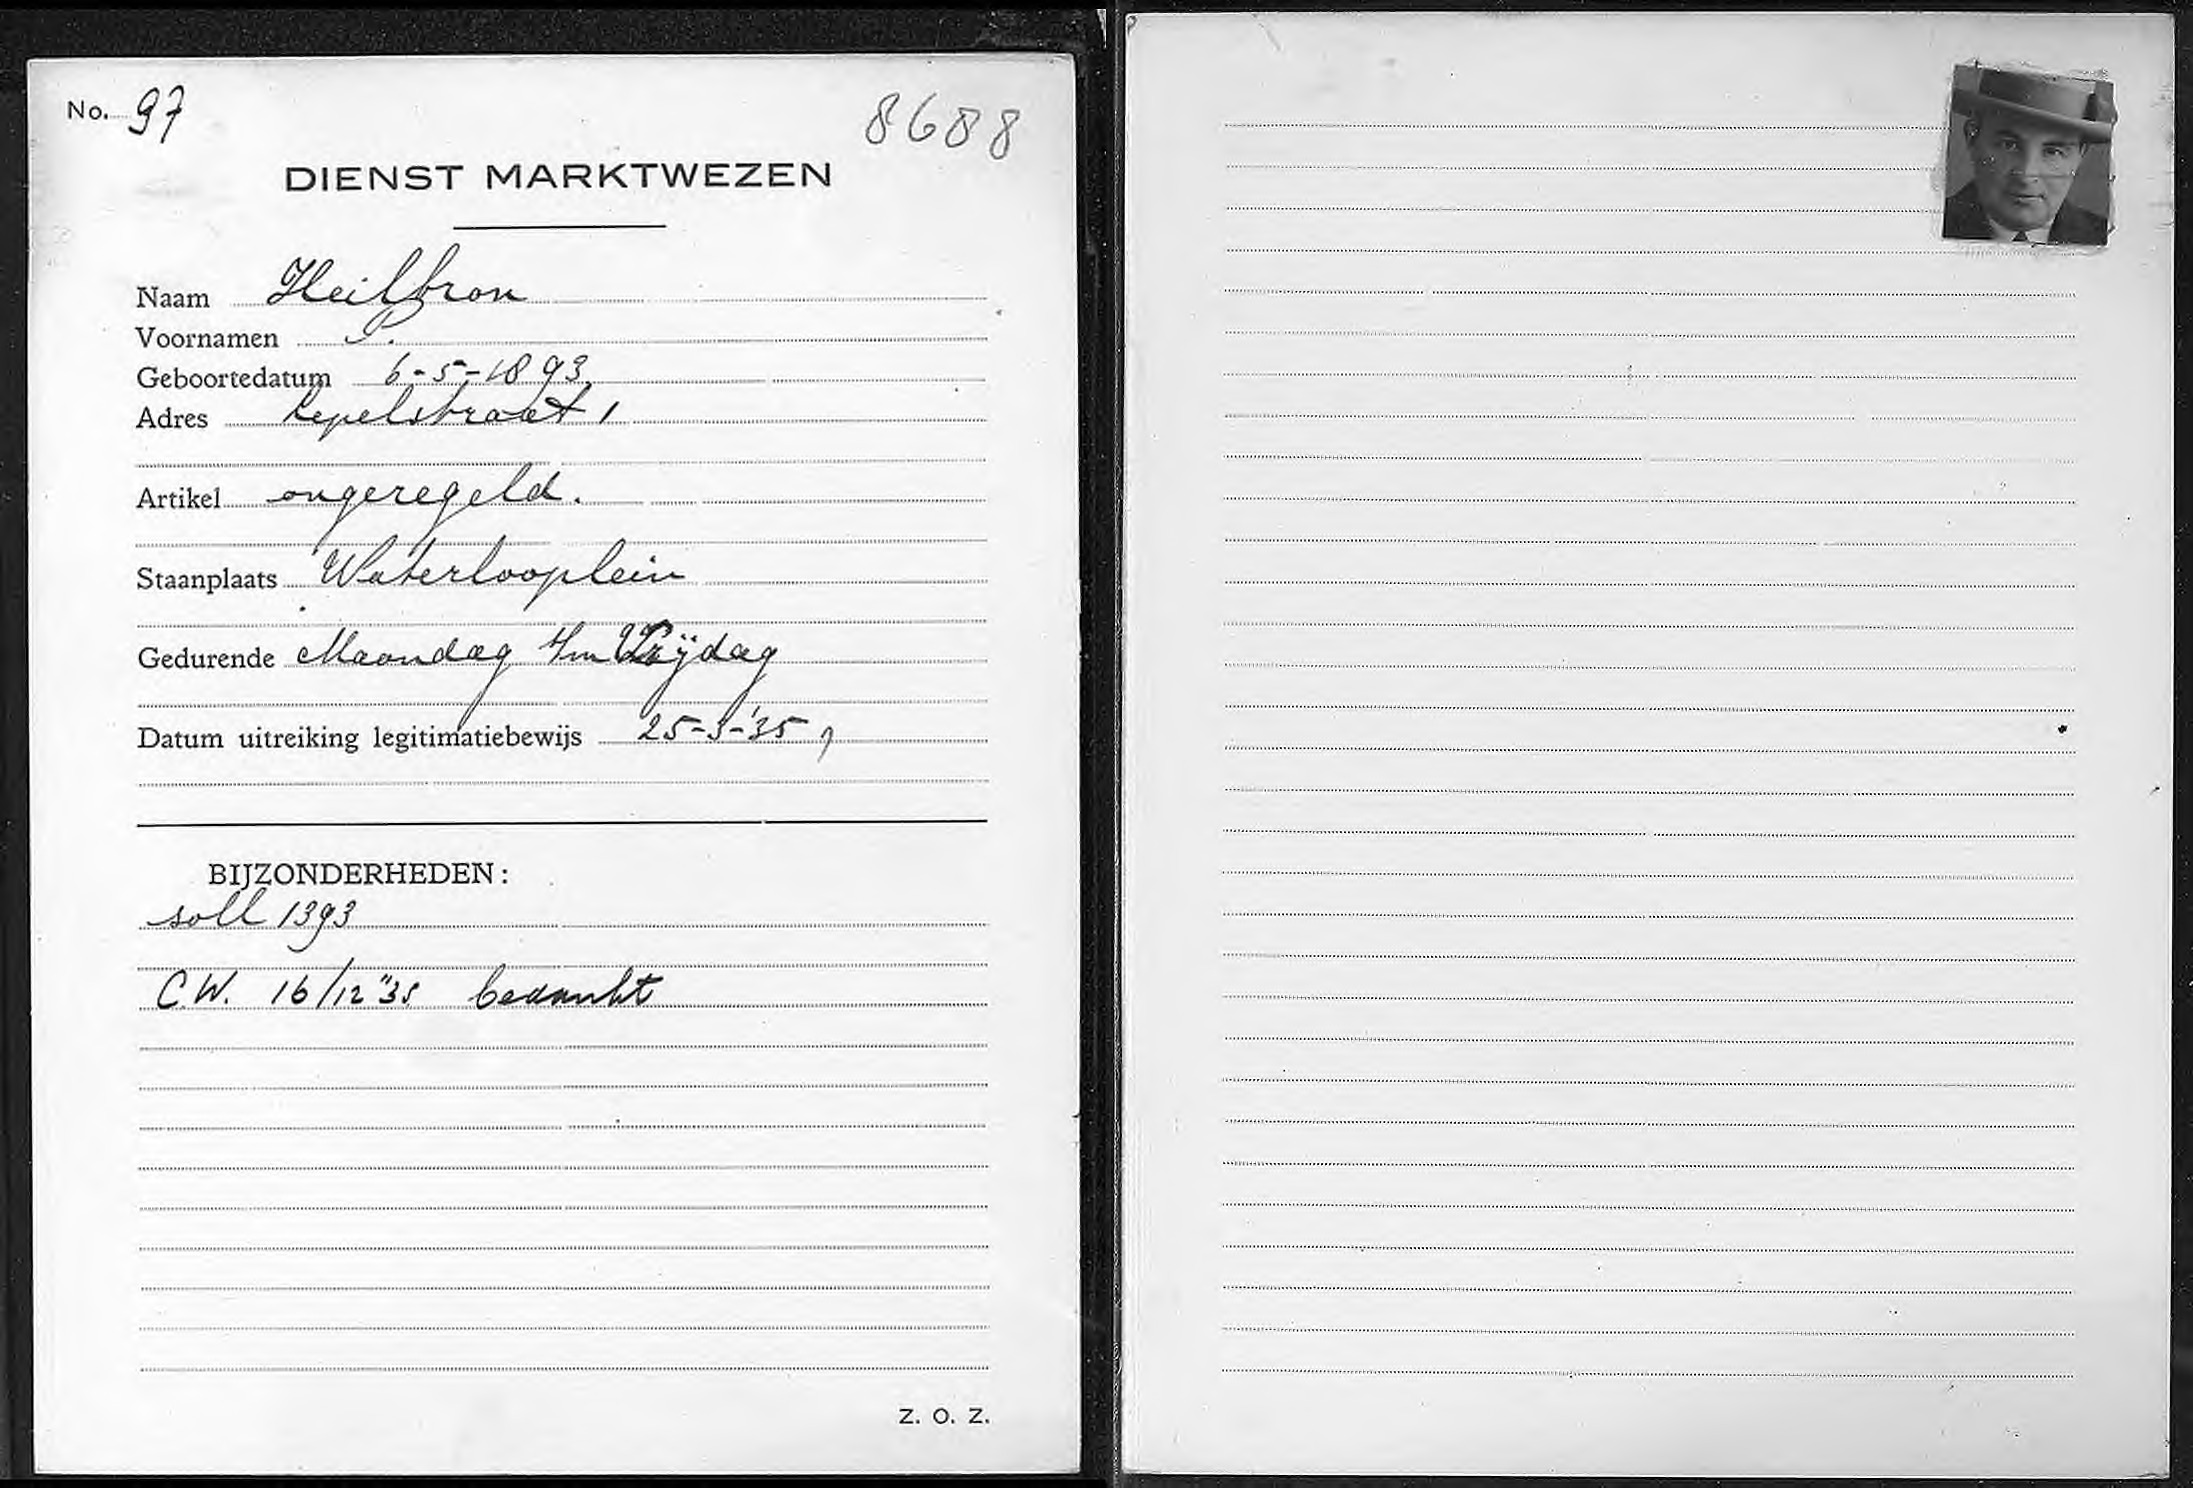 No. 97
8688
DIENST MARKTWEZEN
Naam Heilbron
Voornamen P.
Geboortedatum 6-5-1893
Adres Lepelstraat 1
Artikel ongeregeld.
Staanplaats Waterlooplein
Gedurende Maandag t/m Vrijdag
Datum uitreiking legitimatiebewijs 25-3-'35
BIJZONDERHEDEN:
soll 1393
C.W. 16/12 "35 bedankt
Z. O. Z.